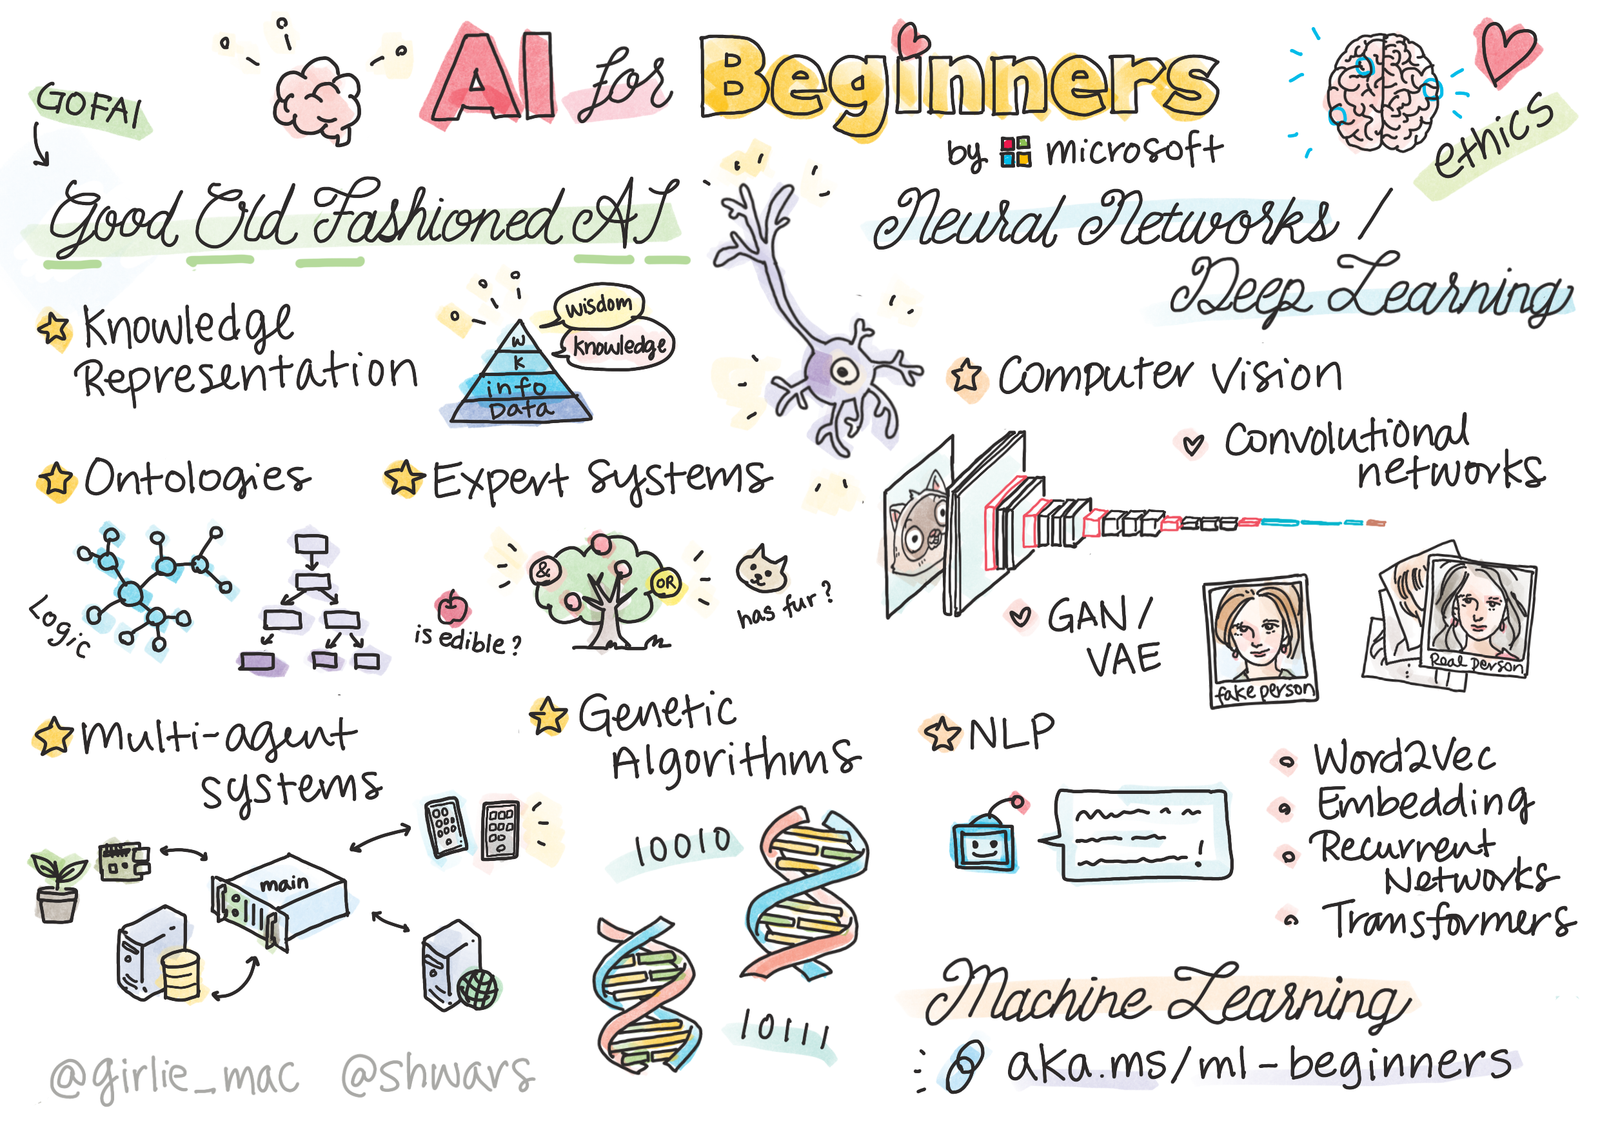 AI for Beginners
by Microsoft
ethics
GOFAI
Good Old Fashioned AI
Knowledge
Representation
wisdom
knowledge
W
K
info
Data
Ontologies
Logic
Expert Systems
&
OR
is edible?
has fur?
Multi-agent
systems
main
Genetic
Algorithms
10010
10111
Neural Networks /
Deep Learning
Computer Vision
Convolutional
networks
GAN /
VAE
fake person
Real person
NLP
!
Word2Vec
Embedding
Recurrent
Networks
Transformers
Machine Learning
aka.ms/ml-beginners
@girlie_mac @shwars